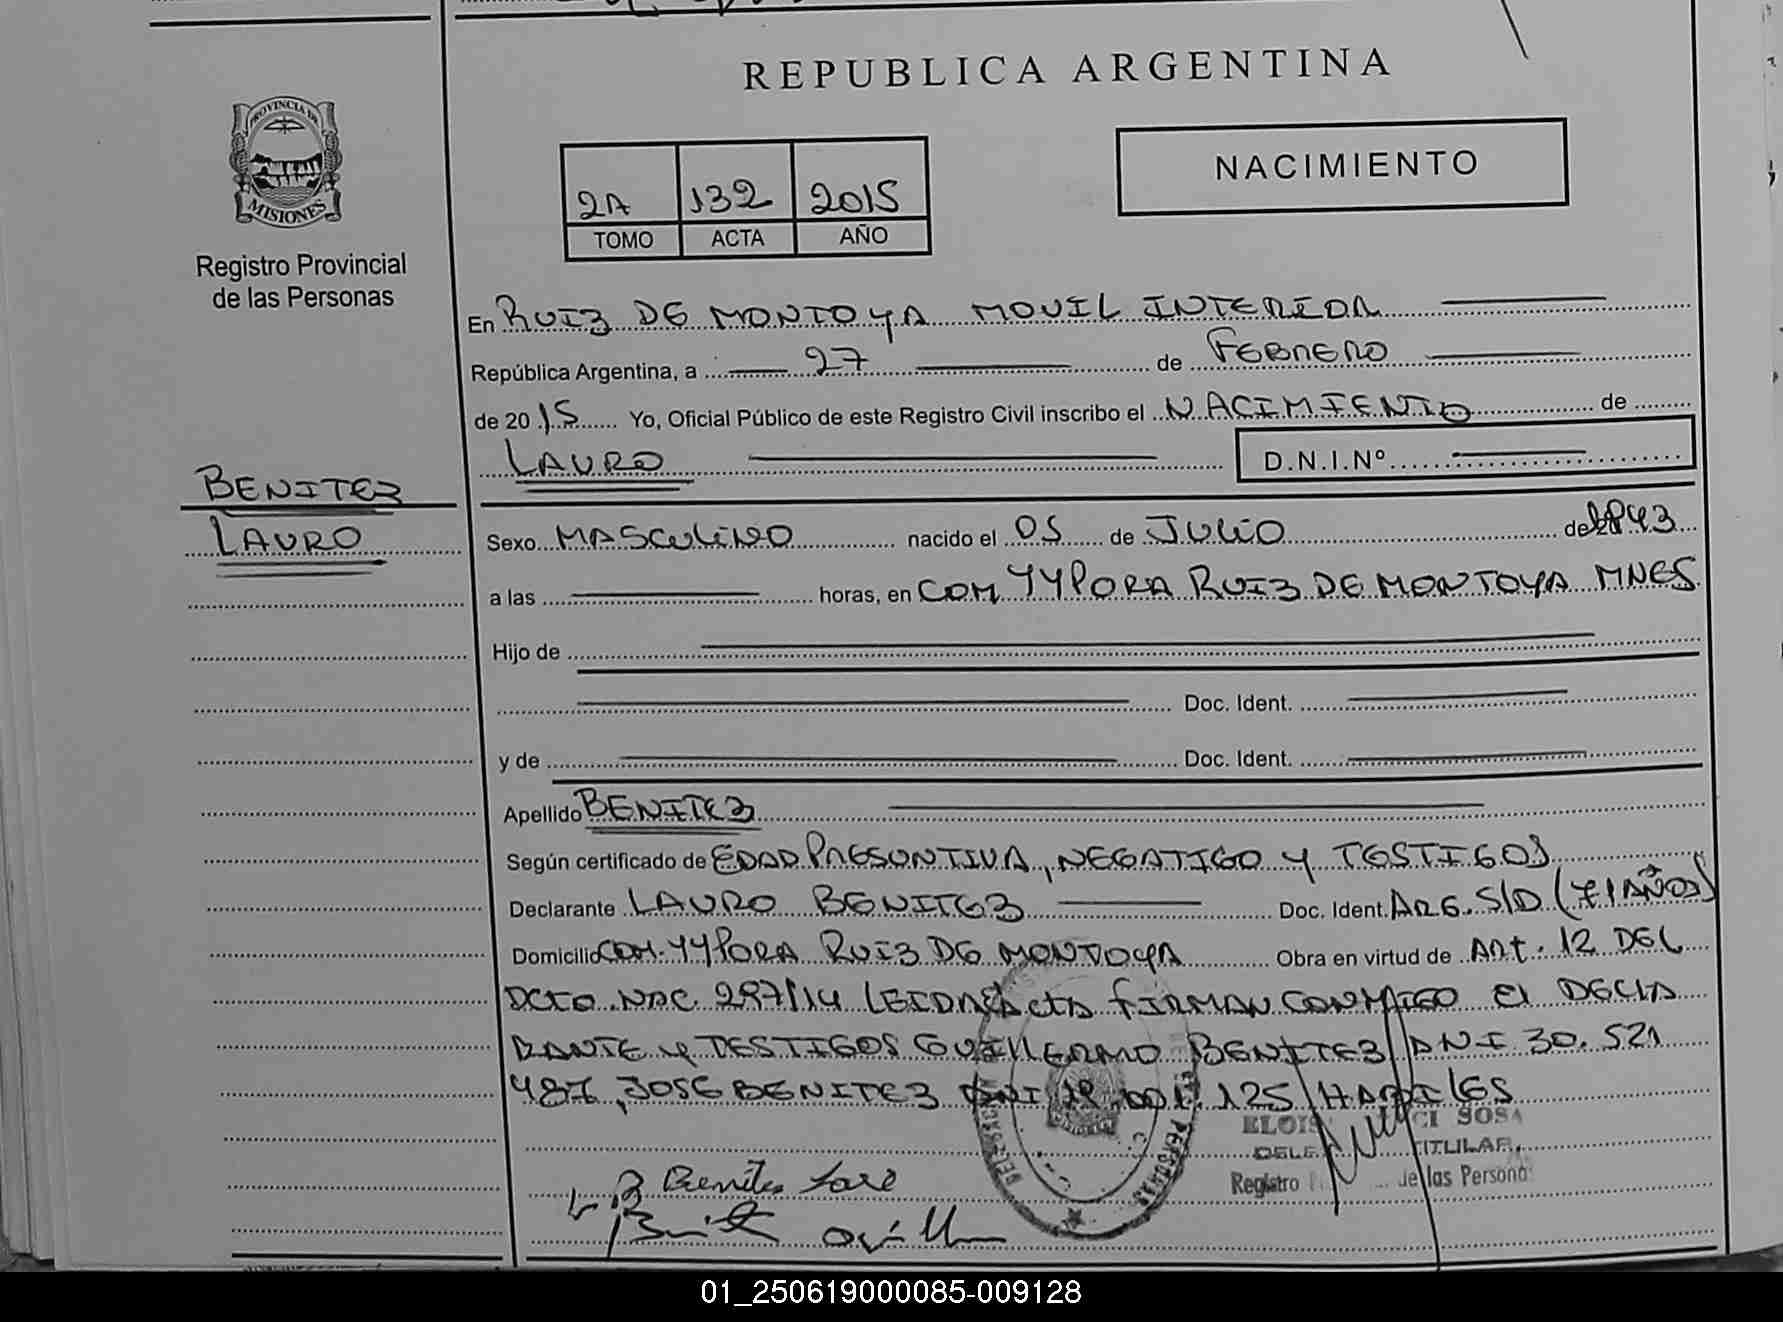 REPUBLICA ARGENTINA
PROVINCIA DE
MISIONES
Registro Provincial
de las Personas
NACIMIENTO
2A 132 2015
TOMO ACTA AÑO
En RUIZ DE MONTOYA MOVIL INTERIOR
República Argentina, a 27 de FEBRERO
de 2015 Yo, Oficial Público de este Registro Civil inscribo el NACIMIENTO de
LAURO D.N.I.Nº
BENITEZ
LAURO
Sexo MASCULINO nacido el 05 de JULIO de 1943
a las horas, en COM YYPORA RUIZ DE MONTOYA MNES
Hijo de
Doc. Ident.
y de Doc. Ident.
Apellido BENITEZ
Según certificado de EDAD PRESUNTIVA, NEGATIGO y TESTIGOS
Declarante LAURO BENITEZ Doc. Ident. ARG. S/D (71 AÑOS)
Domicilio COM. YYPORA RUIZ DE MONTOYA Obra en virtud de Art. 12 DEL
DCTO NAC 297/14 LEIDA EL Acta FIRMAN CONMIGO El DECLA
RANTE y TESTIGOS GUILLERMO BENITEZ DNI 30.521
487, JOSE BENITEZ DNI 125 HABILES
SOSA
TITULAR
Registro de las Personas
Benitez José